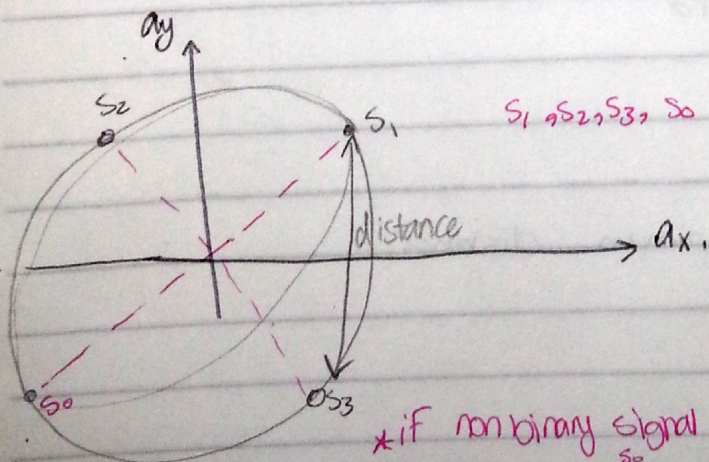 ay
S2
S1
S1 , S2, S3, S0
distance
ax.
S0
S3
*if non binary signal
S0